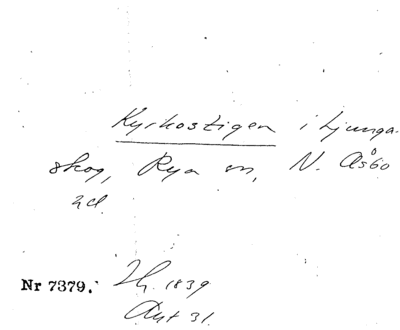 Kyrkostigen i Ljunga-
skog, Rya sn, N. Åsbo
hd.
Nr 7379. 1839
Akt 31.